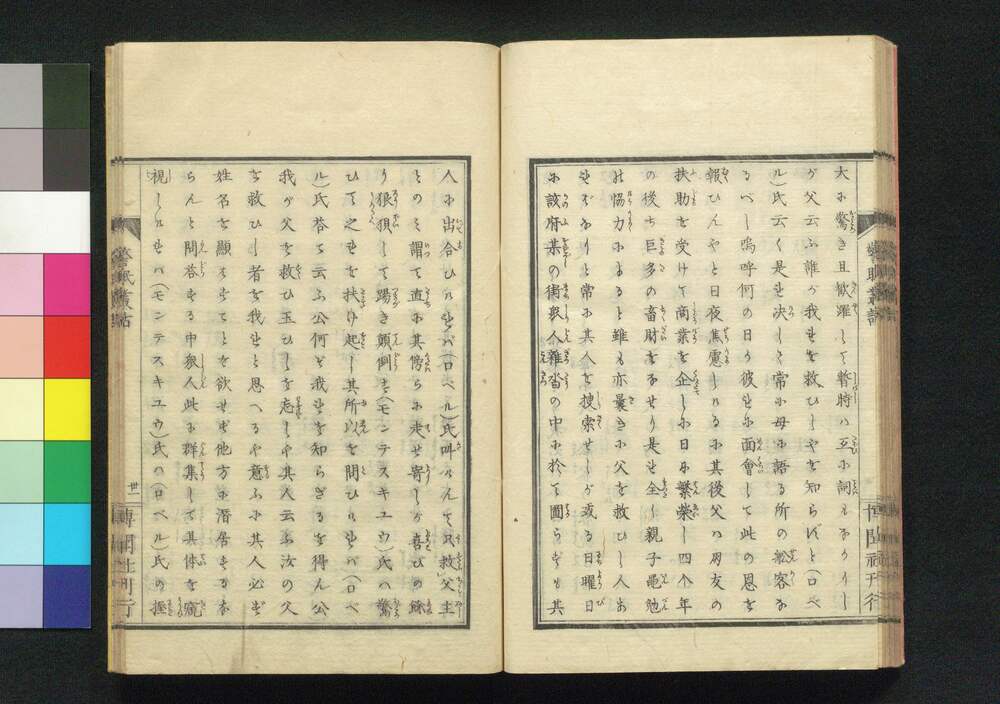 大ニ驚き且歓躍して暫時ハ互に詞もなかりし
が父云ふ誰が我れを救ひしやを知らずと(ロベ
ル)氏云く是れ決して常に母の語る所の舩客な
るべし嗚呼何の日か彼れに面會して此の恩を
報ひんやと日夜焦慮しける に其後父ハ朋友の
扶助を受けて商業を企しに日に繁榮し四个年
の後ち巨多の畜財をなせり是れ全く親子黽勉
の協力によると雖も亦曩きに父を救ひし人の
なりと常に其人を捜索せしが或る日曜日
に該府某の街衆人雜沓の中に於て圖らずも其
人に出合ひけれバ(ロベル)氏叫けんで只救父主
とのみ謂て直に其傍らに走せ寄しが喜びの餘
り狼狽して踢き顛倒す(モンテスキユウ)氏ハ驚
ひて之れを扶け起し其所以を問ひけれバ(ロベ
ル)氏答て云ふ公何ぞ我れを知らざるを得ん公
我が父を救ひ玉ひしを忘しや其人云ふ汝の父
を救ひし者を我れと思へるや意ふに其人必ず
姓名を顯はすことを欲せず他方に潜居するな
らんと問答する中衆人此に群集して其体を窺
視しけれバ(モンテスキユウ)氏ハ(ロベル)氏の握
警眠叢話
廿一
博聞社刊行